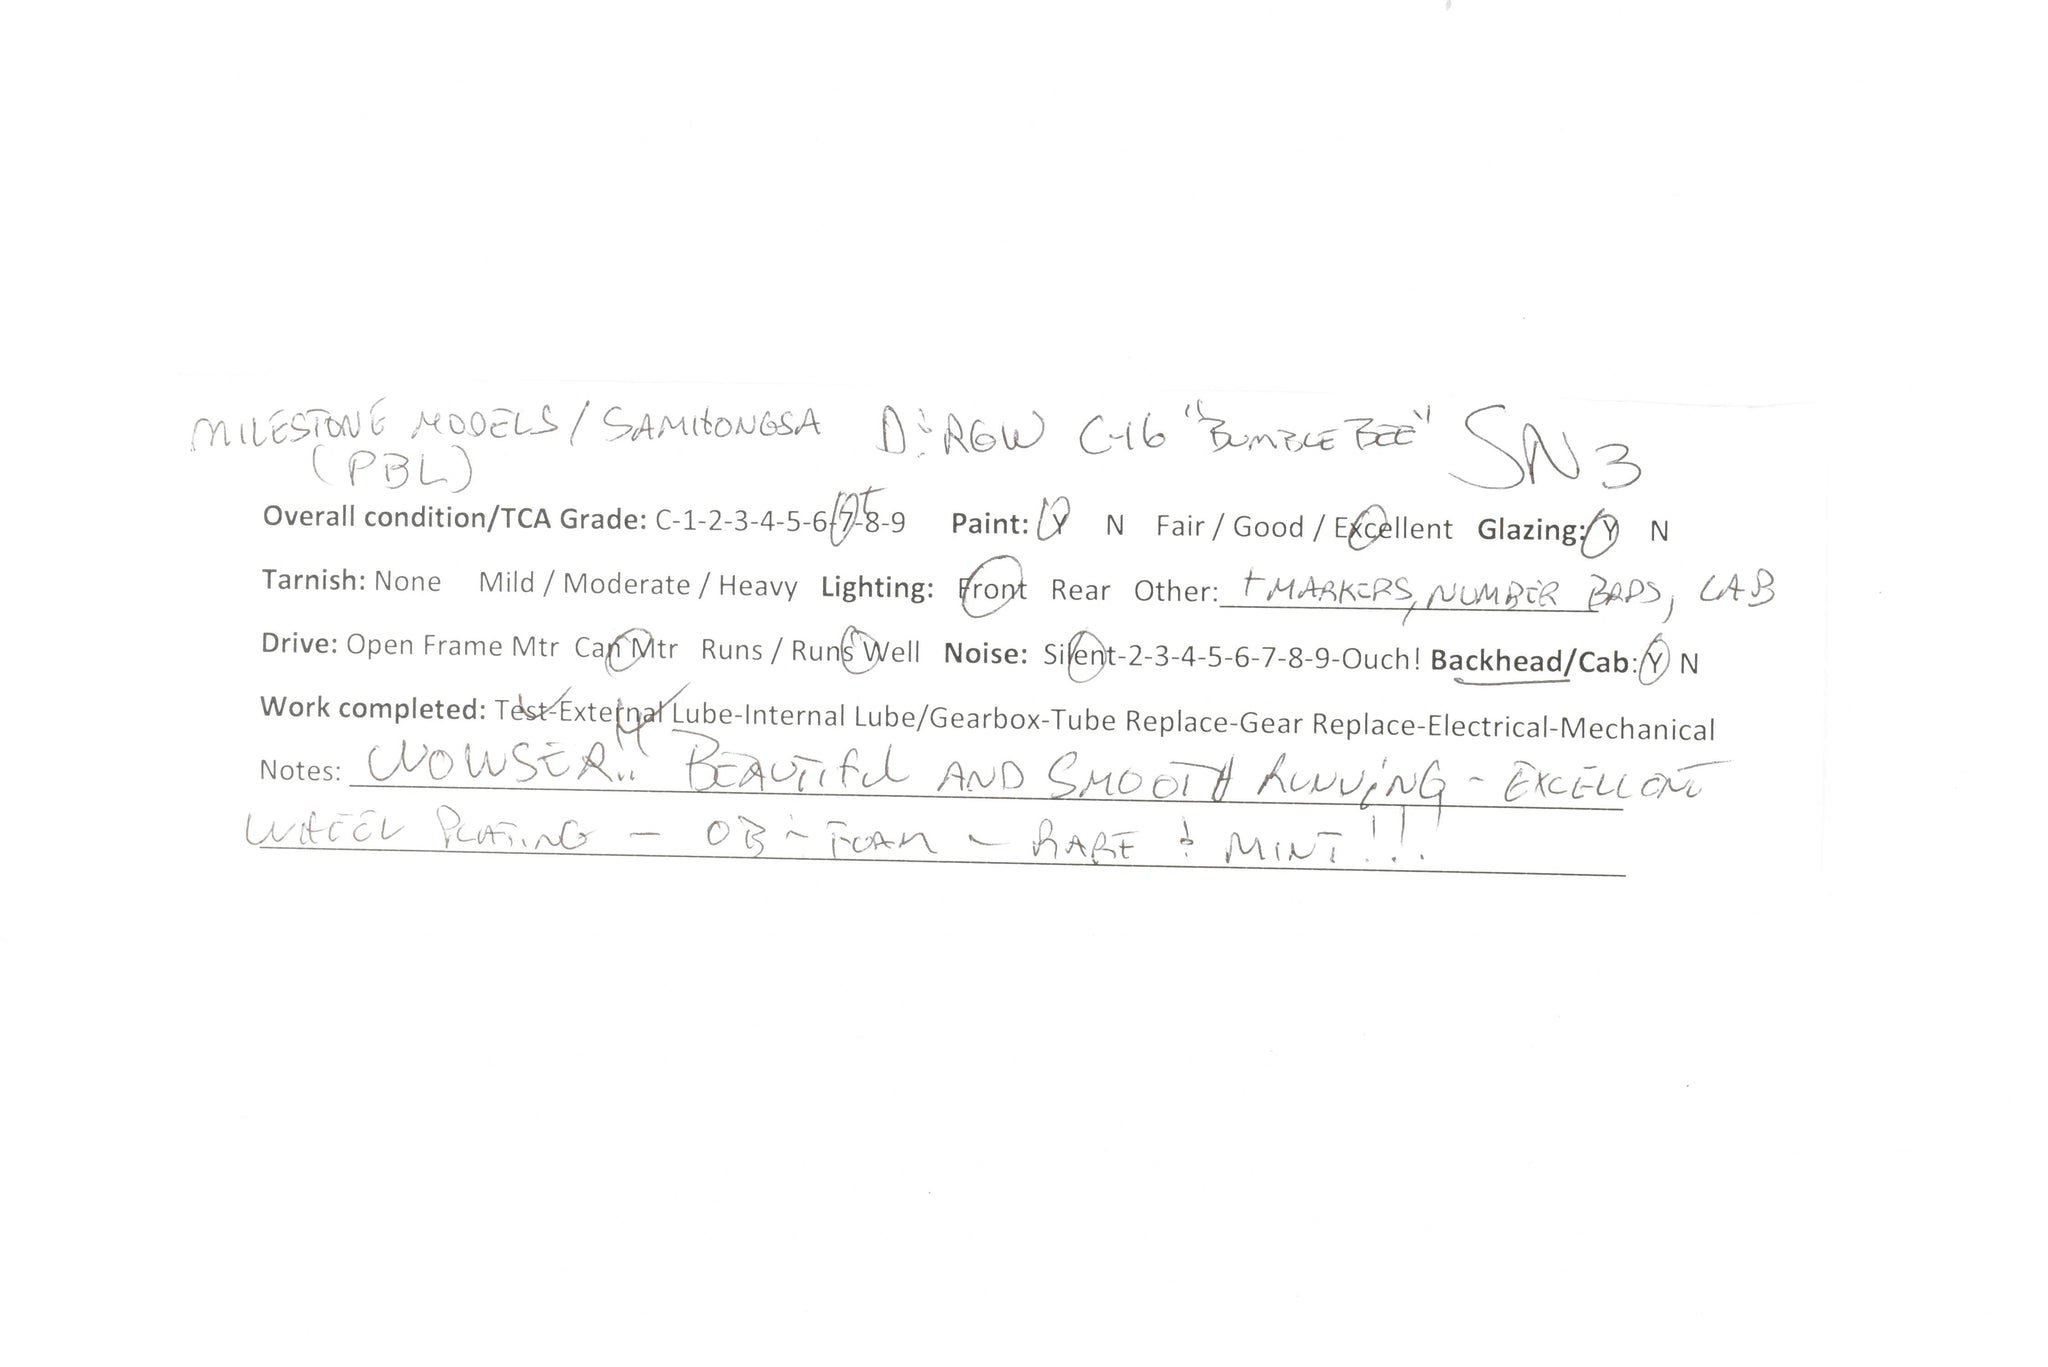 MILESTONE MODELS / SAMHONGSA D&RGW C-16 "BUMBLE BEE" SN3
(PBL)
Overall condition/TCA Grade: C-1-2-3-4-5-6-7+-8-9 Paint: Y N Fair / Good / Excellent Glazing: Y N
Tarnish: None Mild / Moderate / Heavy Lighting: Front Rear Other: + MARKERS, NUMBER BRDS, CAB
Drive: Open Frame Mtr Can Mtr Runs / Runs Well Noise: Silent-2-3-4-5-6-7-8-9-Ouch! Backhead/Cab: Y N
Work completed: Test-External Lube-Internal Lube/Gearbox-Tube Replace-Gear Replace-Electrical-Mechanical
Notes: WOWSER!! BEAUTIFUL AND SMOOTH RUNNING - EXCELLENT
WHEEL PLATING - OB - FOAM - RARE & MINT!!!